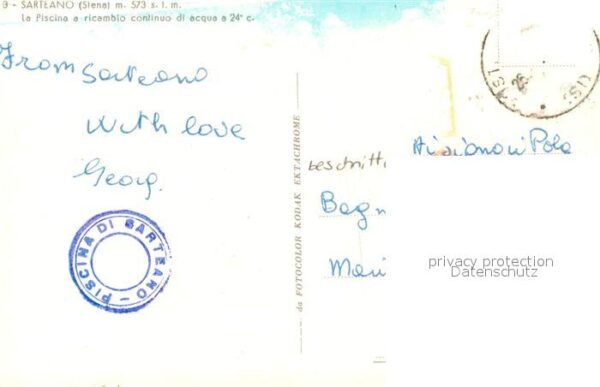 9 - SARTEANO (Siena) m. 573 s. l. m.
La Piscina a ricambio continuo di acqua a 24° c.
From Sarteano
With love
Georg.
PISCINA DI SARTEANO
da FOTOCOLOR KODAK EKTACHROME
beschnitt
Pola
Bagn
Mari
privacy protection
Datenschutz